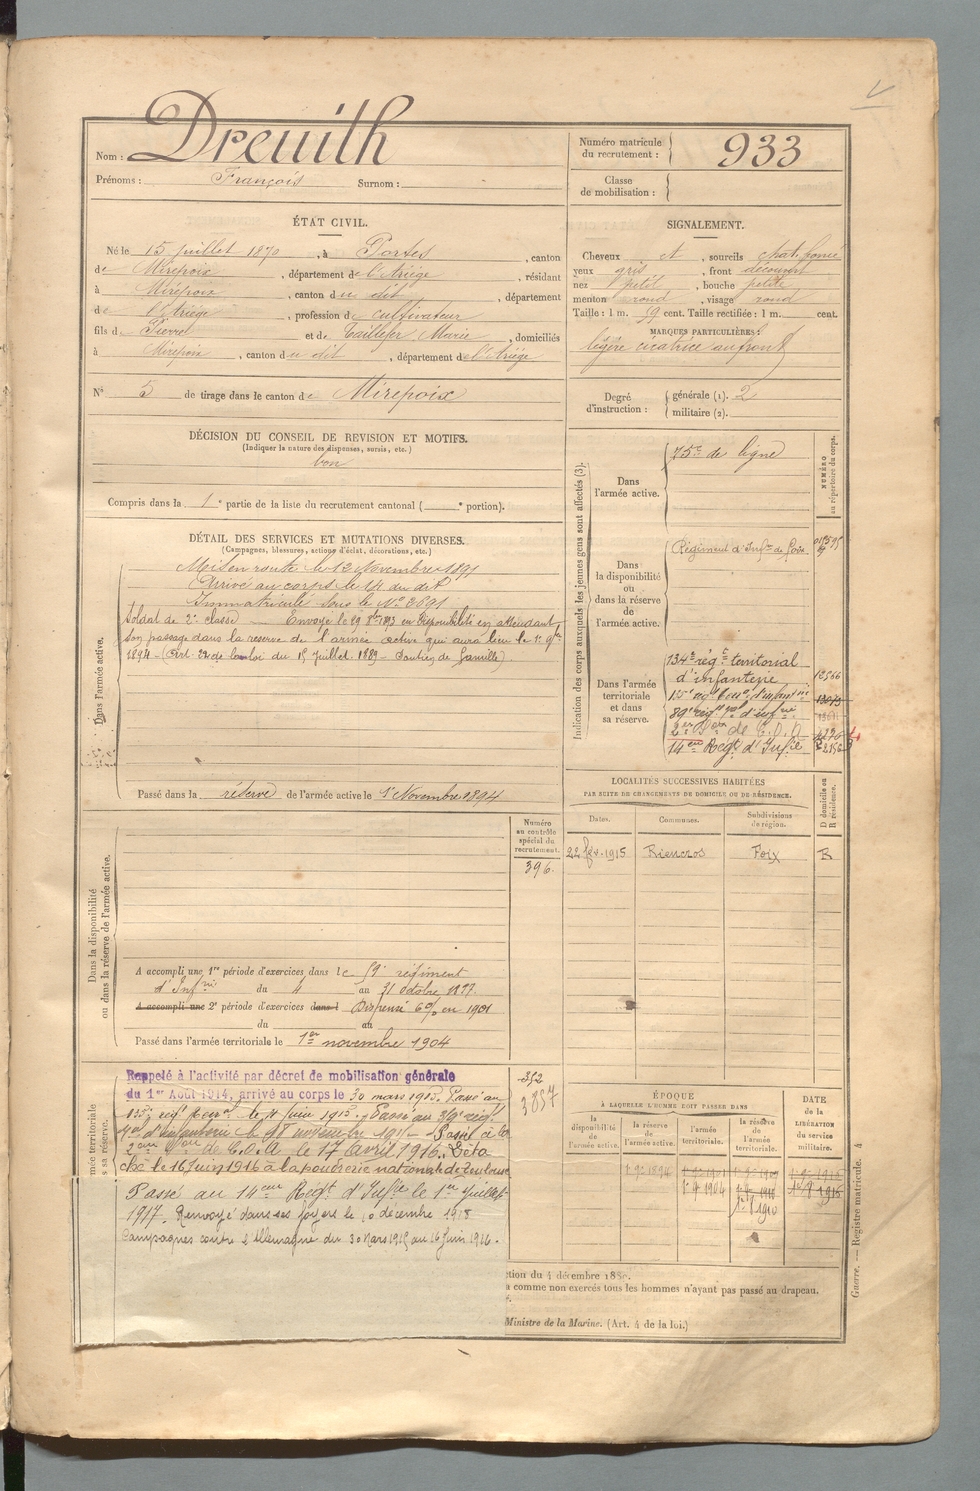 Nom : Dreuilh
Prénoms : François Surnom :
Numéro matricule du recrutement : 933
Classe de mobilisation :
ÉTAT CIVIL.
Né le 15 juillet 1870, à Portes, canton
de Mirepoix, département de l'Ariège, résidant
à Mirepoix, canton du dit, département
de l'Ariège, profession de cultivateur
fils de Pierre et de Taillefer Marie, domiciliés
à Mirepoix, canton du dit, département de l'Ariège
N° 5 de tirage dans le canton de Mirepoix
SIGNALEMENT.
Cheveux et, sourcils chat. foncé
yeux gris, front découvert
nez petit, bouche petite
menton rond, visage rond
Taille : 1 m. 59 cent. Taille rectifiée : 1 m. cent.
MARQUES PARTICULIÈRES :
légère cicatrice au front
Degré d'instruction : générale (1). 2
militaire (2).
DÉCISION DU CONSEIL DE REVISION ET MOTIFS.
(Indiquer la nature des dispenses, sursis, etc.)
bon
Compris dans la 1e partie de la liste du recrutement cantonal ( e portion).
DÉTAIL DES SERVICES ET MUTATIONS DIVERSES.
(Campagnes, blessures, actions d'éclat, décorations, etc.)
Dans l'armée active.
Mis en route le 12 Novembre 1891
Arrivé au corps le 14 du dit
Immatriculé sous le N° 3891
Soldat de 2e classe Envoyé le 29 8bre 1893 en disponibilité en attendant
son passage dans la réserve de l'armée active qui aura lieu le 1e 9bre
1894 - (Art. 22 de la loi du 15 Juillet 1889 - soutien de famille).
Passé dans la réserve de l'armée active le 1e Novembre 1894
Indication des corps auxquels les jeunes gens sont affectés (3).
NUMÉRO au répertoire du corps.
Dans l'armée active. 75e de ligne
Dans la disponibilité ou dans la réserve de l'armée active. Régiment d'Infrie de Foix.
Dans l'armée territoriale et dans sa réserve.
134e rég.t territorial
d'infanterie 12566
135e rég.t terr.al d'infanterie 13073
89e rég.t d'infrie
2e Son de C.O.A 4276
14eme Régt d'Infie
LOCALITÉS SUCCESSIVES HABITÉES
PAR SUITE DE CHANGEMENTS DE DOMICILE OU DE RÉSIDENCE.
Dates. Communes. Subdivisions de région. D domicile ou R résidence.
22 fév. 1915 Rieucros Foix R
Dans la disponibilité ou dans la réserve de l'armée active.
Numéro au contrôle spécial du recrutement.
396.
A accompli une 1re période d'exercices dans le 59e régiment
d'Infrie du 4 au 31 octobre 1897.
A accompli une 2e période d'exercices dans l Dispensé 6% en 1901
du au
Passé dans l'armée territoriale le 1er novembre 1904
mée territoriale
s sa réserve.
Rappelé à l'activité par décret de mobilisation générale
du 1er Août 1914, arrivé au corps le 30 mars 1915. Passé au
135e rég.t terr.al le 11 Juin 1915. Passé au 89e rég.t
d'infanterie le 18 novembre 1915 - Passé à la
2eme Son de C.O.A le 17 avril 1916. Déta
ché le 16 juin 1916 à la poudrerie nationale de Toulouse
Passé au 14eme Régt d'Infie le 1er Juillet
1917. Renvoyé dans ses foyers le 10 décembre 1918
Campagnes contre l'Allemagne du 30 mars 1915 au 16 juin 1916.
352
3857
ÉPOQUE
À LAQUELLE L'HOMME DOIT PASSER DANS
la disponibilité de l'armée active. la réserve de l'armée active. l'armée territoriale. la réserve de l'armée territoriale.
DATE de la LIBÉRATION du service militaire.
1e 9e 1894
1e 9e 1904
ction du 4 décembre 1889.
a comme non exercés tous les hommes n'ayant pas passé au drapeau.
Ministre de la Marine. (Art. 4 de la loi.)
Guerre. — Registre matricule. 4